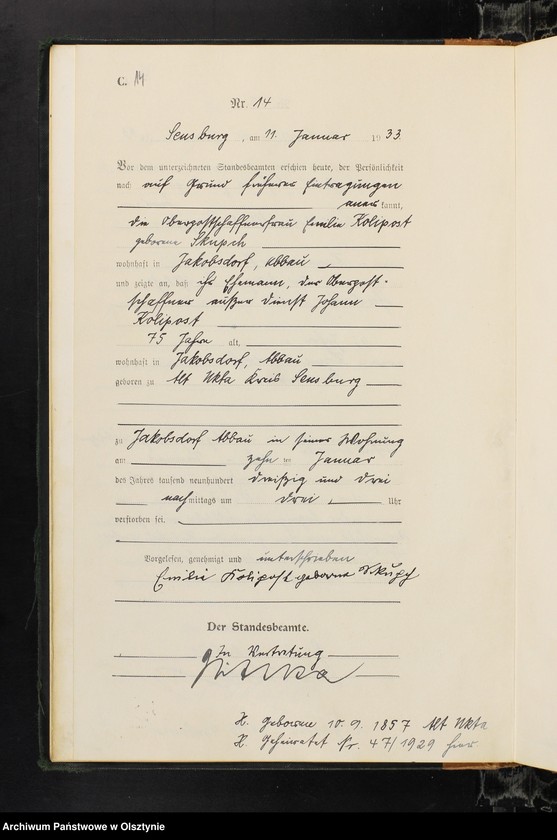 C. 14
Nr. 14
Sensburg, am 11. Januar 1933.
Vor dem unterzeichneten Standesbeamten erschien heute, der Persönlichkeit
nach auf Grund früherer Eintragungen
anerkannt,
die Oberpostschaffnersfrau Emilie Kolipost
geborene Skupch
wohnhaft in Jakobsdorf, Abbau,
und zeigte an, daß ihr Ehemann, der Oberpost-
schaffner außer Dienst Johann
Kolipost
75 Jahre alt,
wohnhaft in Jakobsdorf, Abbau
geboren zu Alt Ukta Kreis Sensburg
zu Jakobsdorf Abbau in seiner Wohnung
am zehn ten Januar
des Jahres tausend neunhundert dreißig und drei
nachmittags um drei, Uhr
verstorben sei.
Vorgelesen, genehmigt und unterschrieben
Emilie Kolipost geborene Skupch
Der Standesbeamte.
In Vertretung
H. Geboren 10. 9. 1857 Alt Ukta
H. Geheiratet Nr. 47/1929 hier
Archiwum Państwowe w Olsztynie